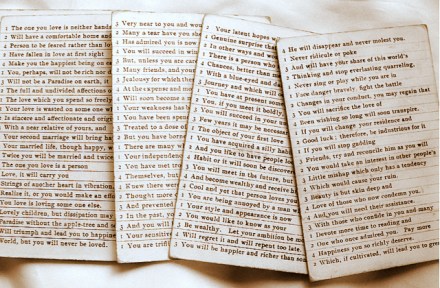 1 The one you love is neither hands
2 Will have a comfortable home and
1 Person to be feared rather than lov
4 Have fallen in love at first sight
1 Make you the happiest being on ea
4 You, perhaps, will not be rich nor d
1 Will not be a Paradise on earth, it
4 The full and undivided affections o
4 The love which you spend so freely
1 Your love is wasted on some one w
1 Is sincere and affectionate and origi
1 With a near relative of yours, and
Your second marriage will bring hap
Your married life, though happy, w
Twice you will be married and twice
The one you love is a person
Love, it will carry you
Strings of another heart in vibration.
Realize it, or you would make an effo
You love is loving some one else.
Lovely children, but dissipation may
Paradise without the apple-tree and
Will triumph and lead you to happine
World, but you will never be loved.
Very near to you and wou
Many a tear have you she
Has admired you is now
You will succeed in win
But, unless you are care
Many friends, and your
Jealousy for which ther
At the expense and mo
Will soon become a
Your weakness has
You have been spen
Treated to a dose of
But you have horre
There are many w
Your independence
You have met tro
Themselves, but
Knew there were
Thought most
And prevented
In the past, yo
And you will
Your sensitive
You are trifli
Your latent hopes
Genuine surprise
In other ways and
There is a person who
Chances, better than
With a blue-eyed
Journey and which will
You have at present
You, if you meet it boldly,
You will succeed in your
Few years it may be necess
The object of your first love
You have acquired a silly h
And you like to have people l
Habit or it will soon be discove
You will meet in the future, but
And become wealthy and receive
Cool and yet that person loves you
You are being annoyed by some
Your style and appearance is now
You would like to know as your
Be wealthy. Let your ambition be
Will regret it and will repent too late.
You will be happier and richer than
He will disappear and never molest you.
Never ridicule or poke
And will have your share of this world's
Thinking and stop everlasting quarreling,
Never sing or play while you are in
You danger bravely fight the battle
Changes in your conduct, you may regain that
You will sacrifice the love of
Been wishing so long will soon transpire.
If you will change your residence and
Good luck, therefore, be industrious for it
If you will stop gadding
Friends, try and reconcile him as you will
You would take an interest in other people's
Little mishap which may be a tendency
Which would cause your ruin.
Beauty is but skin deep and
Love of those who now condemn you.
And you will need their assistance.
With those who confide in you and many
Devote more time to reading and
One who once admired you. Pay more
Happiness you so richly deserve.
Which, if cultivated, will lead you to great